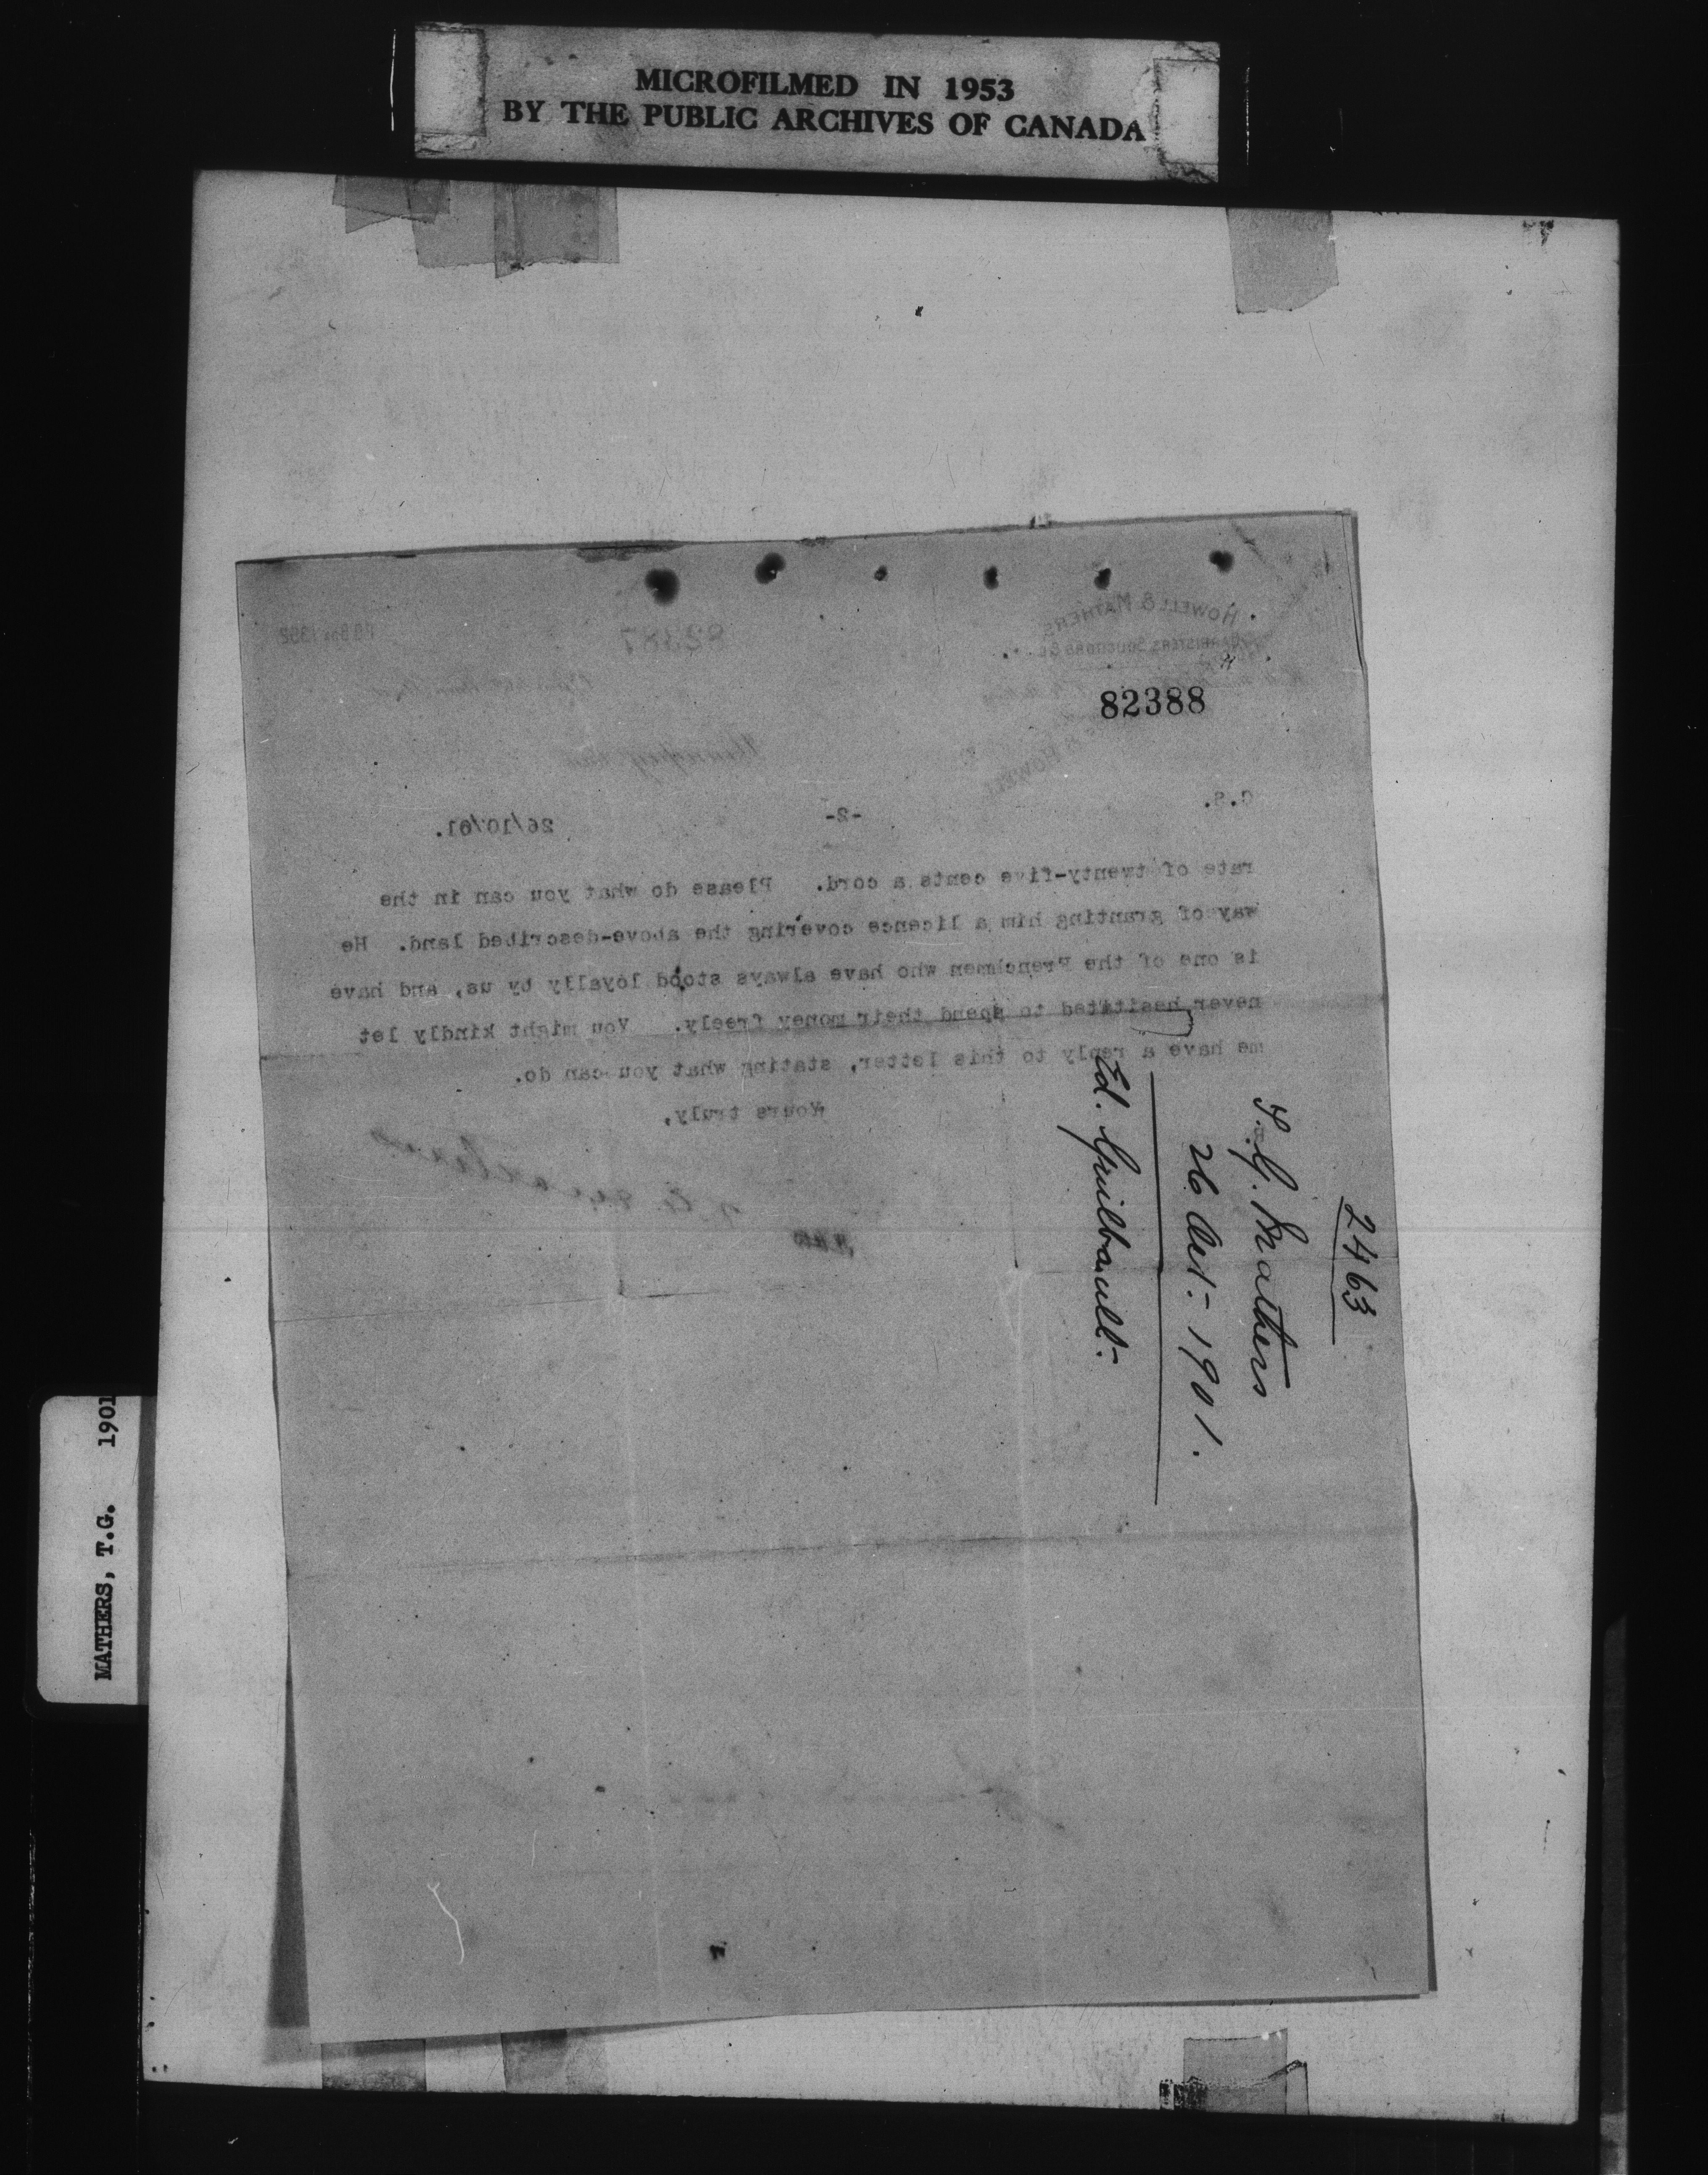 MICROFILMED IN 1953
BY THE PUBLIC ARCHIVES OF CANADA
HOWELL & MATHERS
BARRISTERS, SOLICITORS &c.
82387
P.O. Box 1362
82388
HOWELL
C.S. -2- 26/10/01.
rate of twenty-five cents a cord. Please do what you can in the
way of granting him a licence covering the above-described land. He
is one of the Frenchmen who have always stood loyally by us, and have
never hesitated to spend their money freely. You might kindly let
me have a reply to this letter, stating what you can do.
Yours truly,
2463
T. G. Mathers
26 Oct:- 1901.
Ed. Guilbault:-
MATHERS, T.G. 1901